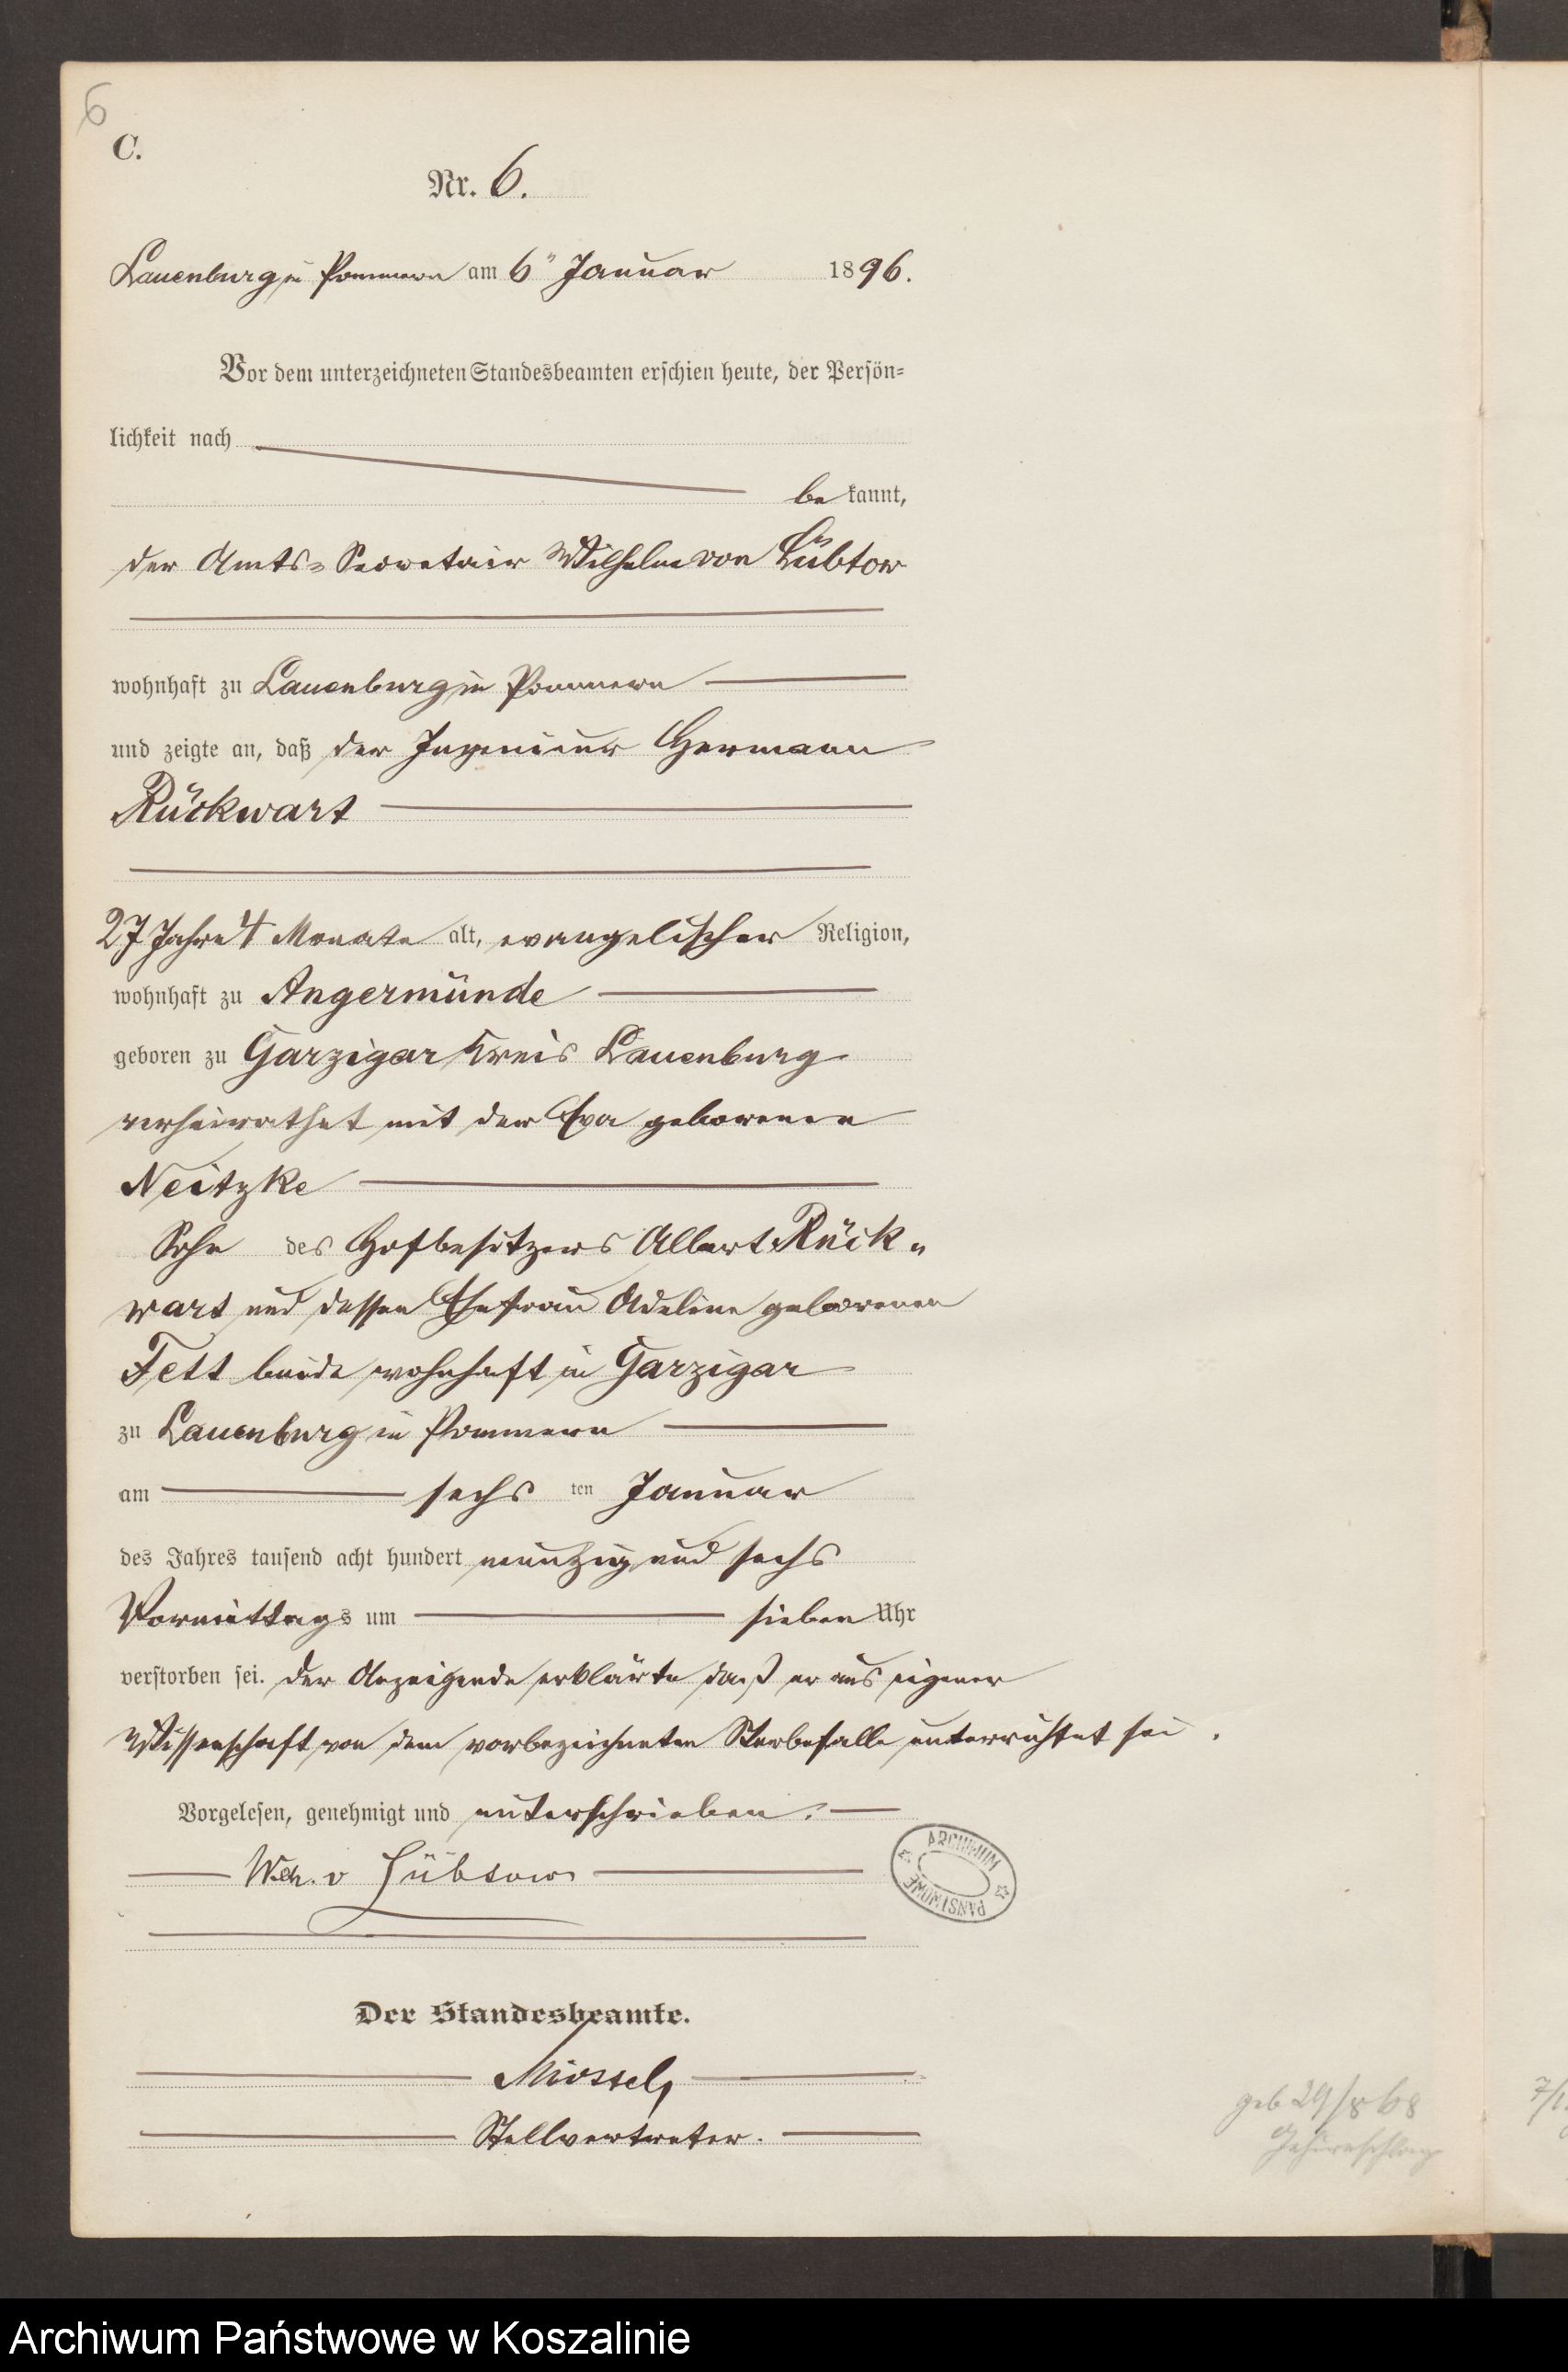 6
C.
Nr. 6.
Lauenburg in Pommern am 6" Januar 1896.
Vor dem unterzeichneten Standesbeamten erschien heute, der Persön=
lichkeit nach
be kannt,
der Amts=Secretair Wilhelm von Lübtow
wohnhaft zu Lauenburg in Pommern
und zeigte an, daß der Ingenieur Hermann
Rückwart
27 Jahre 4 Monate alt, evangelischer Religion,
wohnhaft zu Angermünde
geboren zu Garzigar Kreis Lauenburg
verheirathet mit der Eva geborenen
Neitzke
Sohn des Hofbesitzers Albert Rück„
wart und dessen Ehefrau Adeline geborenen
Fett beide wohnhaft in Garzigar
zu Lauenburg in Pommern
am sechs ten Januar
des Jahres tausend acht hundert neunzig und sechs
Vormittags um sieben Uhr
verstorben sei. Der Anzeigende erklärte daß er aus eigener
Wissenschaft von dem vorbezeichneten Sterbefalle unterrichtet sei.
Vorgelesen, genehmigt und unterschrieben.
v Lübtow
ARCHIWUM PAŃSTWOWE
Der Standesbeamte.
Stellvertreter.
geb 29/8 68
Gehirnschlag
7/1
Archiwum Państwowe w Koszalinie